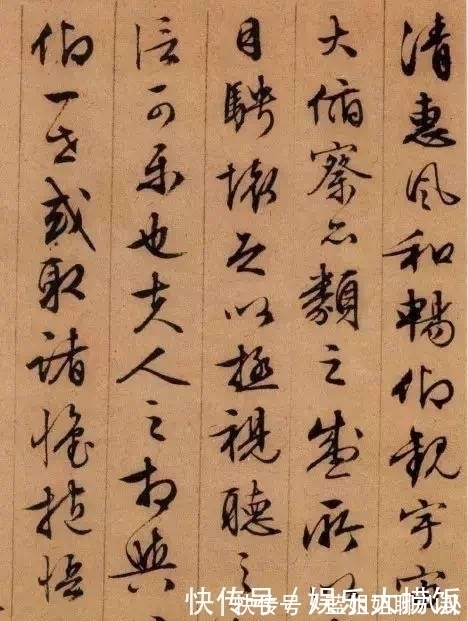 清惠風和暢仰觀宇宙
大俯察品類之盛所以
目騁懷足以極視聽之
信可樂也夫人之相與
俯一世或取諸懷抱悟
快传号/娱乐大
快传号/